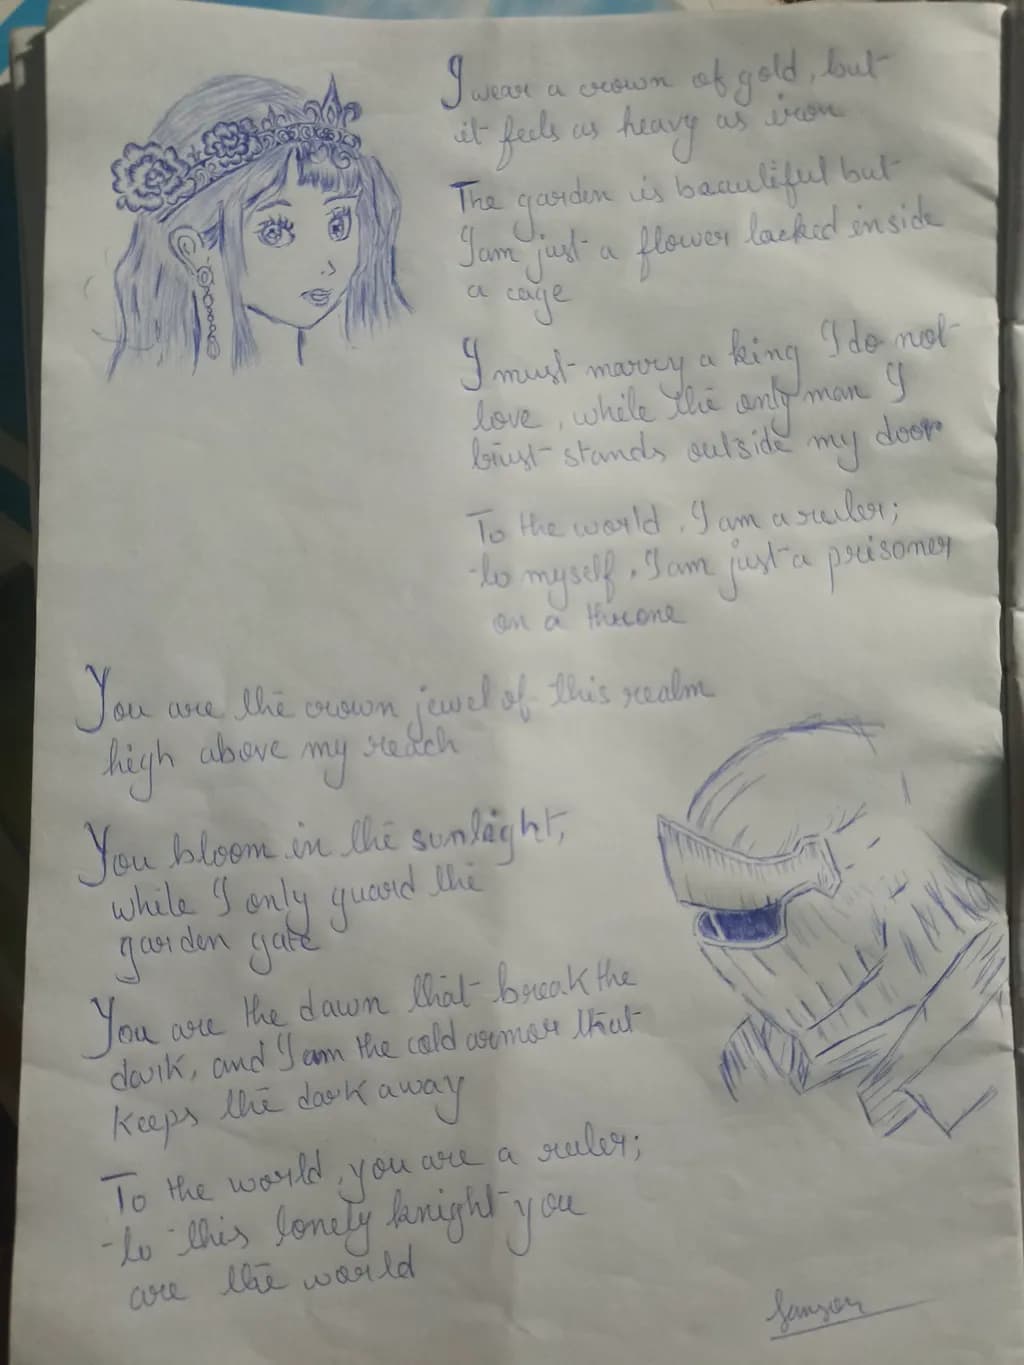 I wear a crown of gold, but
it feels as heavy as iron
The garden is beautiful but
I am just a flower locked inside
a cage
I must marry a king I do not
love, while the only man I
trust stands outside my door
To the world, I am a ruler;
to myself, I am just a prisoner
on a throne
You are the crown jewel of this realm
high above my reach
You bloom in the sunlight,
while I only guard the
garden gate
You are the dawn that break the
dark, and I am the cold armor that
keeps the dark away
To the world, you are a ruler;
to this lonely knight you
are the world